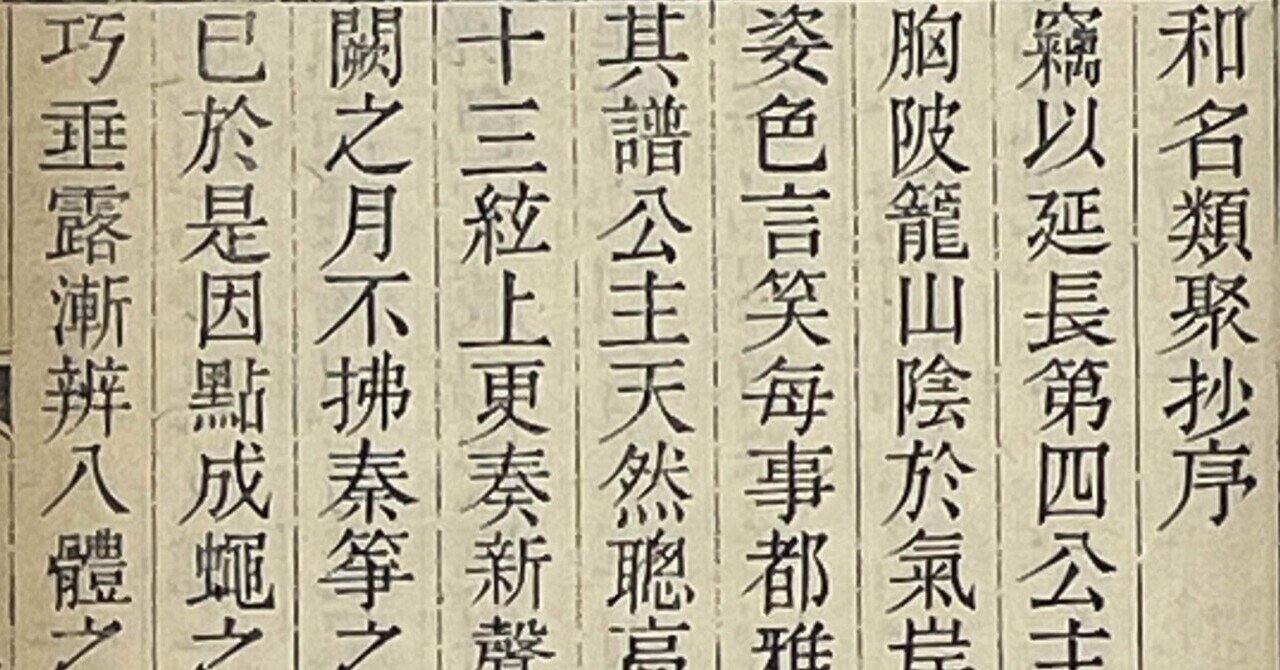 和名類聚抄序
竊以延長第四公主
胸陂籠山陰於氣岸
姿色言笑每事都雅
其譜公主天然聰高
十三絃上更奏新聲
闕之月不拂秦筝之
已於是因點成蠅之
巧垂露漸辨八體之